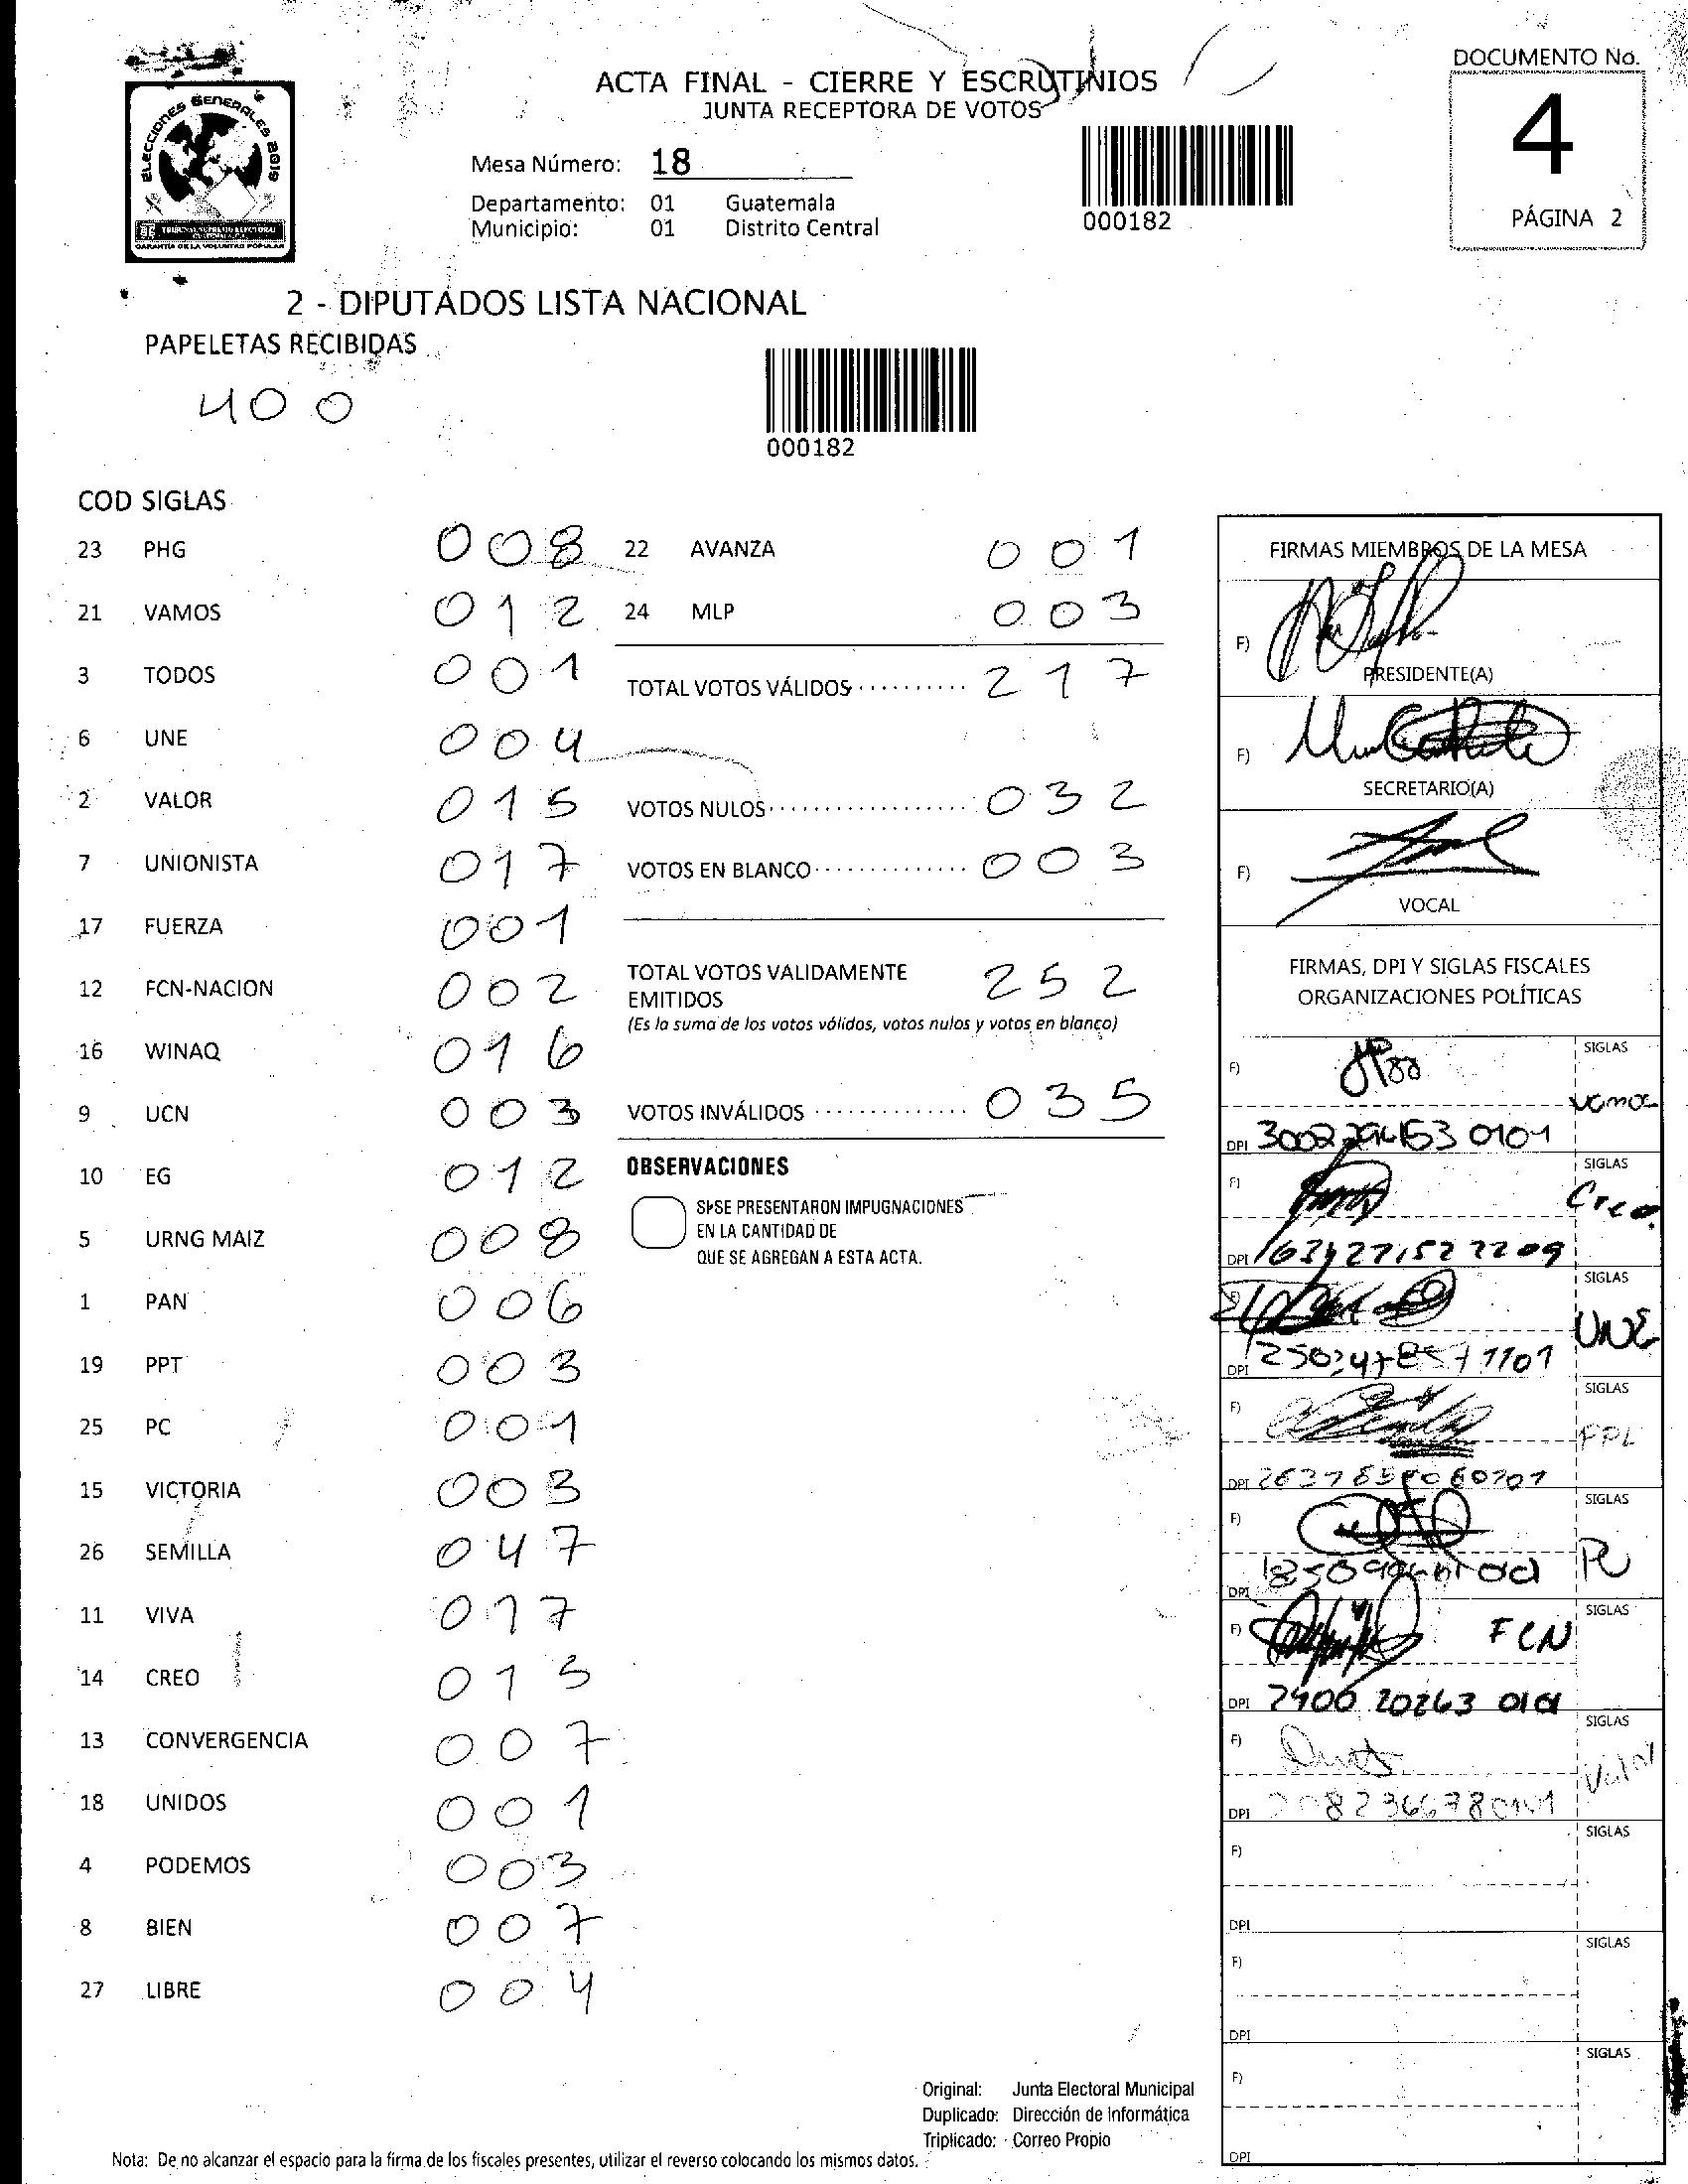 ELECCIONES GENERALES 2019
TRIBUNAL SUPREMO ELECTORAL
GARANTÍA DE LA VOLUNTAD POPULAR
ACTA FINAL - CIERRE Y ESCRUTINIOS
JUNTA RECEPTORA DE VOTOS
Mesa Número: 18
Departamento: 01 Guatemala
Municipio: 01 Distrito Central
000182
DOCUMENTO No.
4
PÁGINA 2
2 - DIPUTADOS LISTA NACIONAL
PAPELETAS RECIBIDAS
400
000182
COD SIGLAS
23 PHG 008
21 VAMOS 012
3 TODOS 001
6 UNE 004
2 VALOR 015
7 UNIONISTA 017
17 FUERZA 001
12 FCN-NACION 002
16 WINAQ 016
9 UCN 003
10 EG 012
5 URNG MAIZ 008
1 PAN 006
19 PPT 003
25 PC 001
15 VICTORIA 003
26 SEMILLA 047
11 VIVA 017
14 CREO 015
13 CONVERGENCIA 007
18 UNIDOS 001
4 PODEMOS 003
8 BIEN 007
27 LIBRE 004
22 AVANZA 001
24 MLP 003
TOTAL VOTOS VÁLIDOS .......... 217
VOTOS NULOS .................. 032
VOTOS EN BLANCO .............. 003
TOTAL VOTOS VALIDAMENTE
EMITIDOS 252
(Es la suma de los votos válidos, votos nulos y votos en blanco)
VOTOS INVÁLIDOS .............. 035
OBSERVACIONES
SI SE PRESENTARON IMPUGNACIONES
EN LA CANTIDAD DE
QUE SE AGREGAN A ESTA ACTA.
FIRMAS MIEMBROS DE LA MESA
F)
PRESIDENTE(A)
F)
SECRETARIO(A)
F)
VOCAL
FIRMAS, DPI Y SIGLAS FISCALES
ORGANIZACIONES POLÍTICAS
F) SIGLAS
Vamos
DPI
F) SIGLAS
Creo
DPI
F) SIGLAS
UNE
DPI
F) SIGLAS
DPI
F) SIGLAS
DPI
F) SIGLAS
FCN
DPI
F) SIGLAS
Valor
DPI
F) SIGLAS
DPI
F) SIGLAS
DPI
F) SIGLAS
DPI
Original: Junta Electoral Municipal
Duplicado: Dirección de Informática
Triplicado: Correo Propio
Nota: De no alcanzar el espacio para la firma de los fiscales presentes, utilizar el reverso colocando los mismos datos.